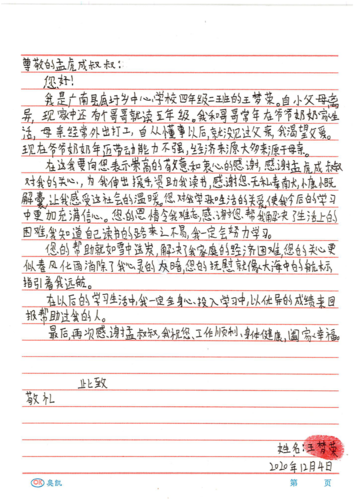 尊敬的孟虎成叔叔：
您好！
我是广南县底圩乡中心学校四年级二班的王梦荣。自小父母离
异，现家中还有个哥哥就读五年级。我和哥哥常年在爷爷奶奶家生
活，母亲经常外出打工，自从懂事以后，就没见过父亲，我渴望父爱。
现在爷爷奶奶年迈劳动能力不强，经济来源大部来源于母亲。
在这我要向您表示崇高的敬意和衷心的感谢，感谢孟虎成叔叔
对我的关心，为我伸出援手资助我读书，感谢您无私着南扶，慷慨
解囊，让我感受这社会的温暖。您对我学业生活的关爱使我今后的学习
中更加充满信心。您的恩情令我难忘，感谢您帮我解决了生活上的
困难，我知道自己读书的路来之不易，我一定会努力学习。
您的帮助就如雪中送炭，解决了我家庭的经济困难，您的关心更
似春风化雨消除了我心灵的灰暗，您的抚慰就像大海中的航标，
指引着我远航。
在以后的学习生活中，我一定全身心投入学习中，以优异的成绩来回
报帮助过我的人。
最后，再次感谢孟叔叔，我祝您工作顺利、身体健康，阖家幸福。
此致
敬礼
姓名：王梦荣
2020年12月4日
昊凯
第 页